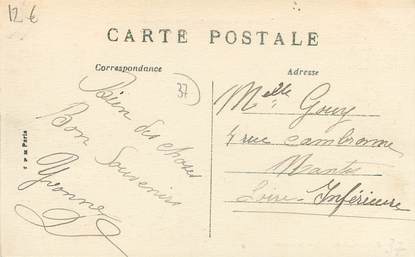 12 €
CARTE POSTALE
Correspondance
Adresse
37
Bien des choses
Bon Souvenir
Yvonne
Melle Gouy
4 rue Cambronne
Nantes
Loire Inférieure
Paris